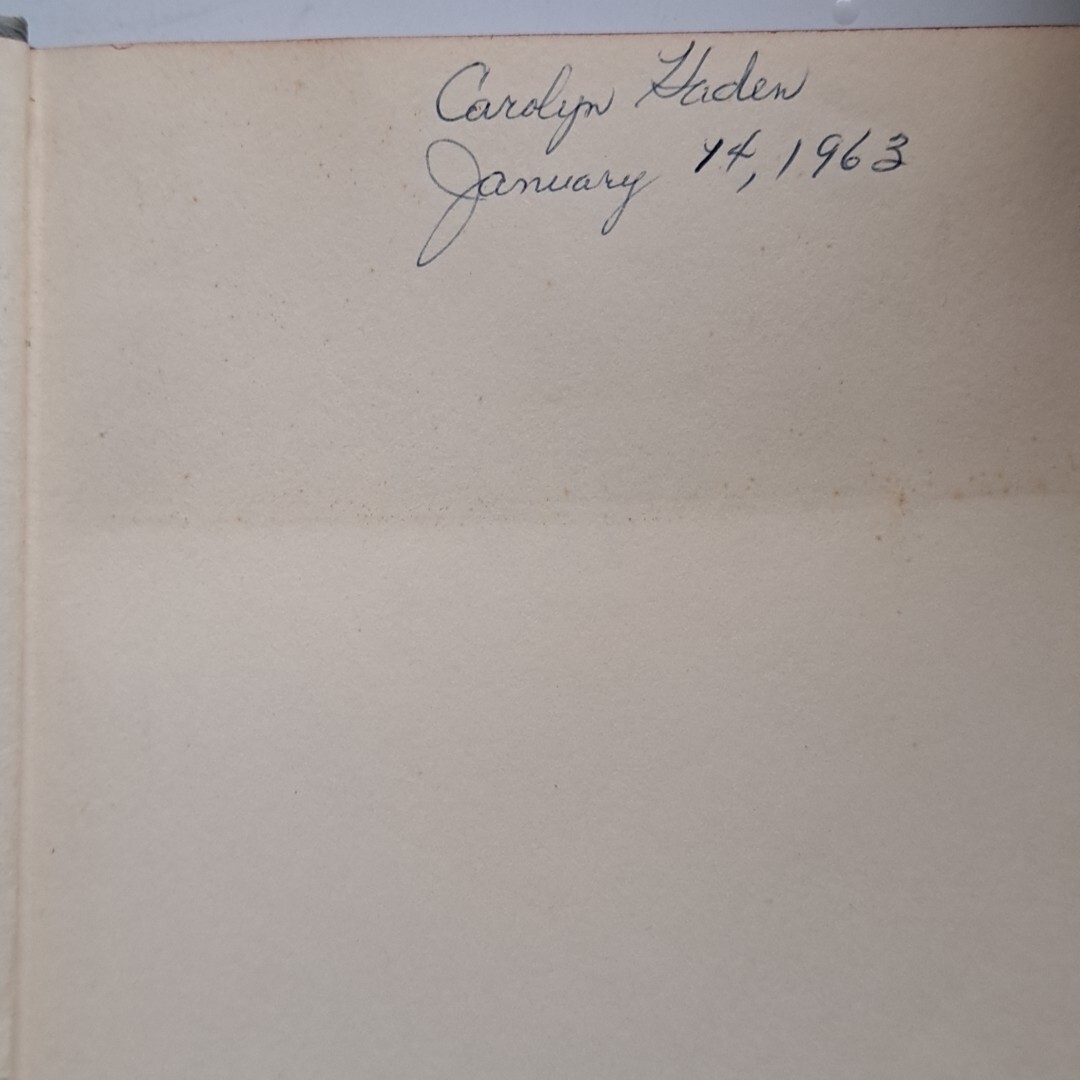 Carolyn Haden
January 14, 1963